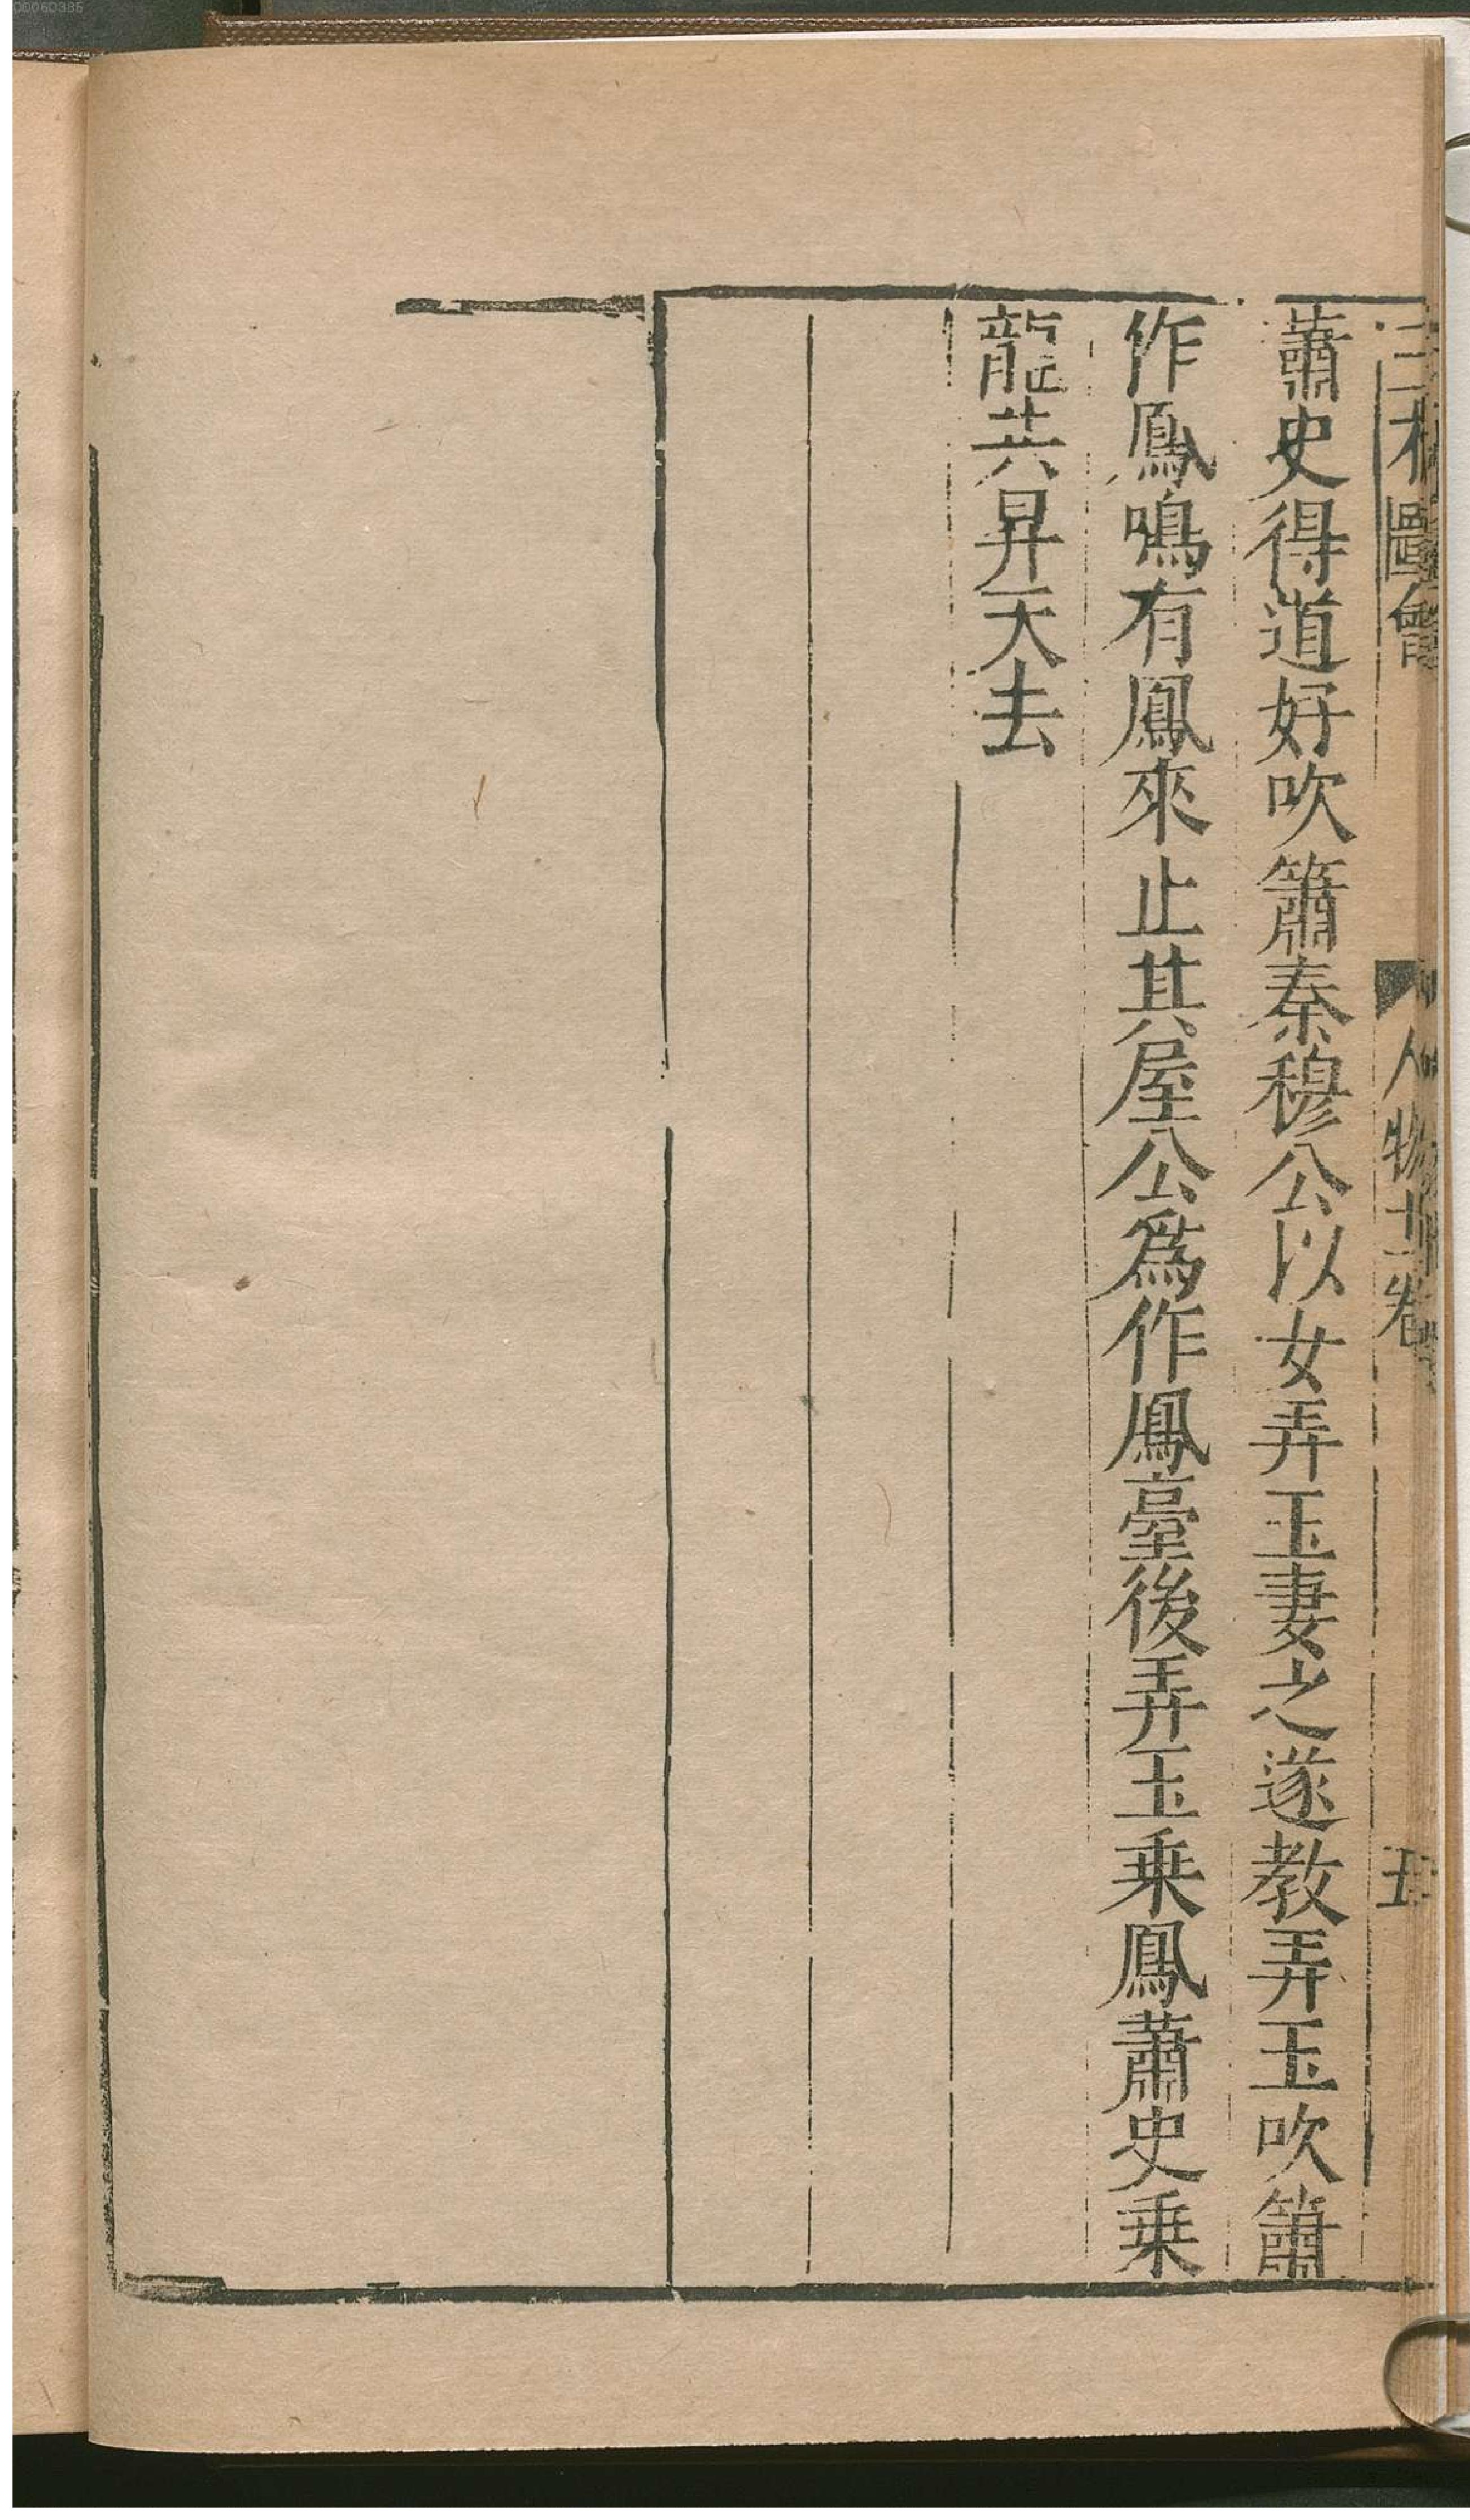 三才圖會 人物十一卷 五
蕭史得道好吹簫秦穆公以女弄玉妻之遂教弄玉吹簫
作鳳鳴有鳳來止其屋公爲作鳳臺後弄玉乗鳳蕭史乗
龍共昇天去